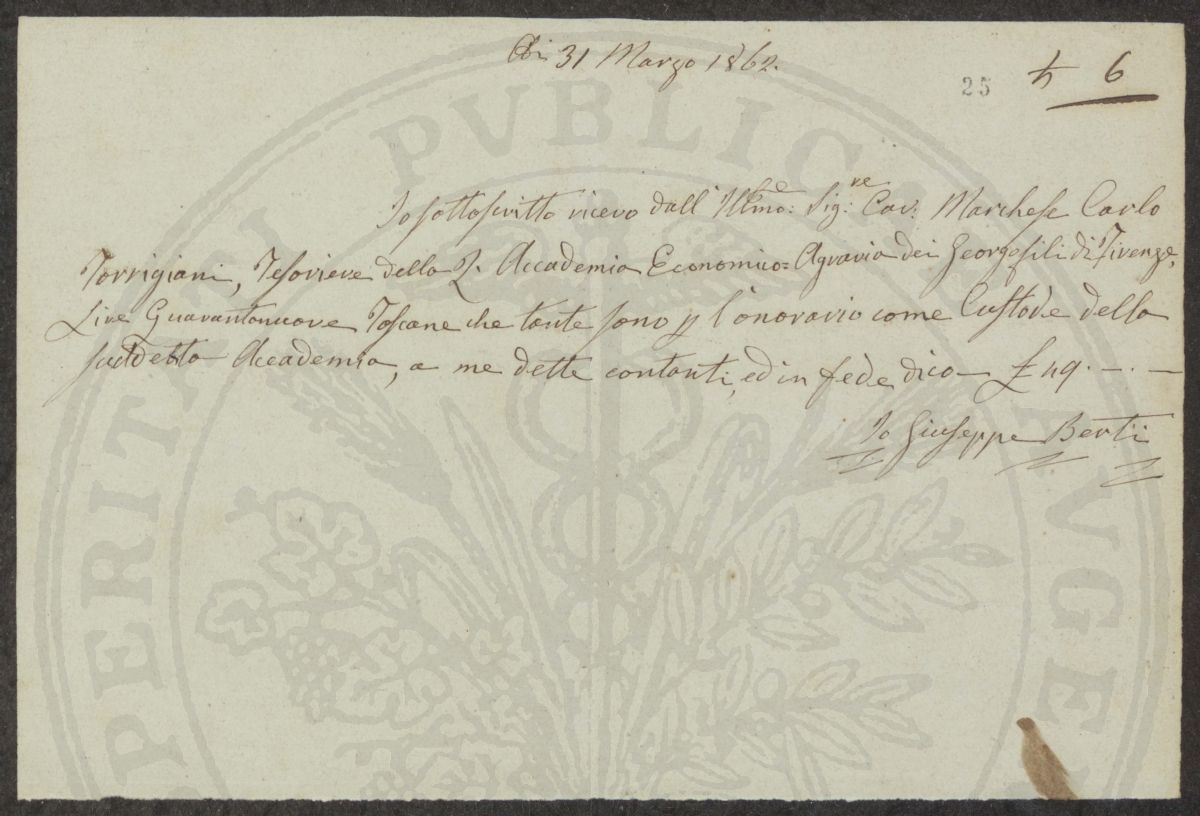 Adi 31 Marzo 1862.
25
6
Io sottoscritto ricevo dall' Illmo: Sig:re Cav: Marchese Carlo
Torrigiani, Tesoriere della R. Accademia Economico=Agraria dei Georgofili di Firenze,
Lire Quarantanuove Toscane che tante sono p l'onorario come Custode della
suddetta Accademia, a me dette contanti, ed in fede dico £ 49. -. -
Io Giuseppe Berti
PROSPERITATI PVBLICAE AVGEN